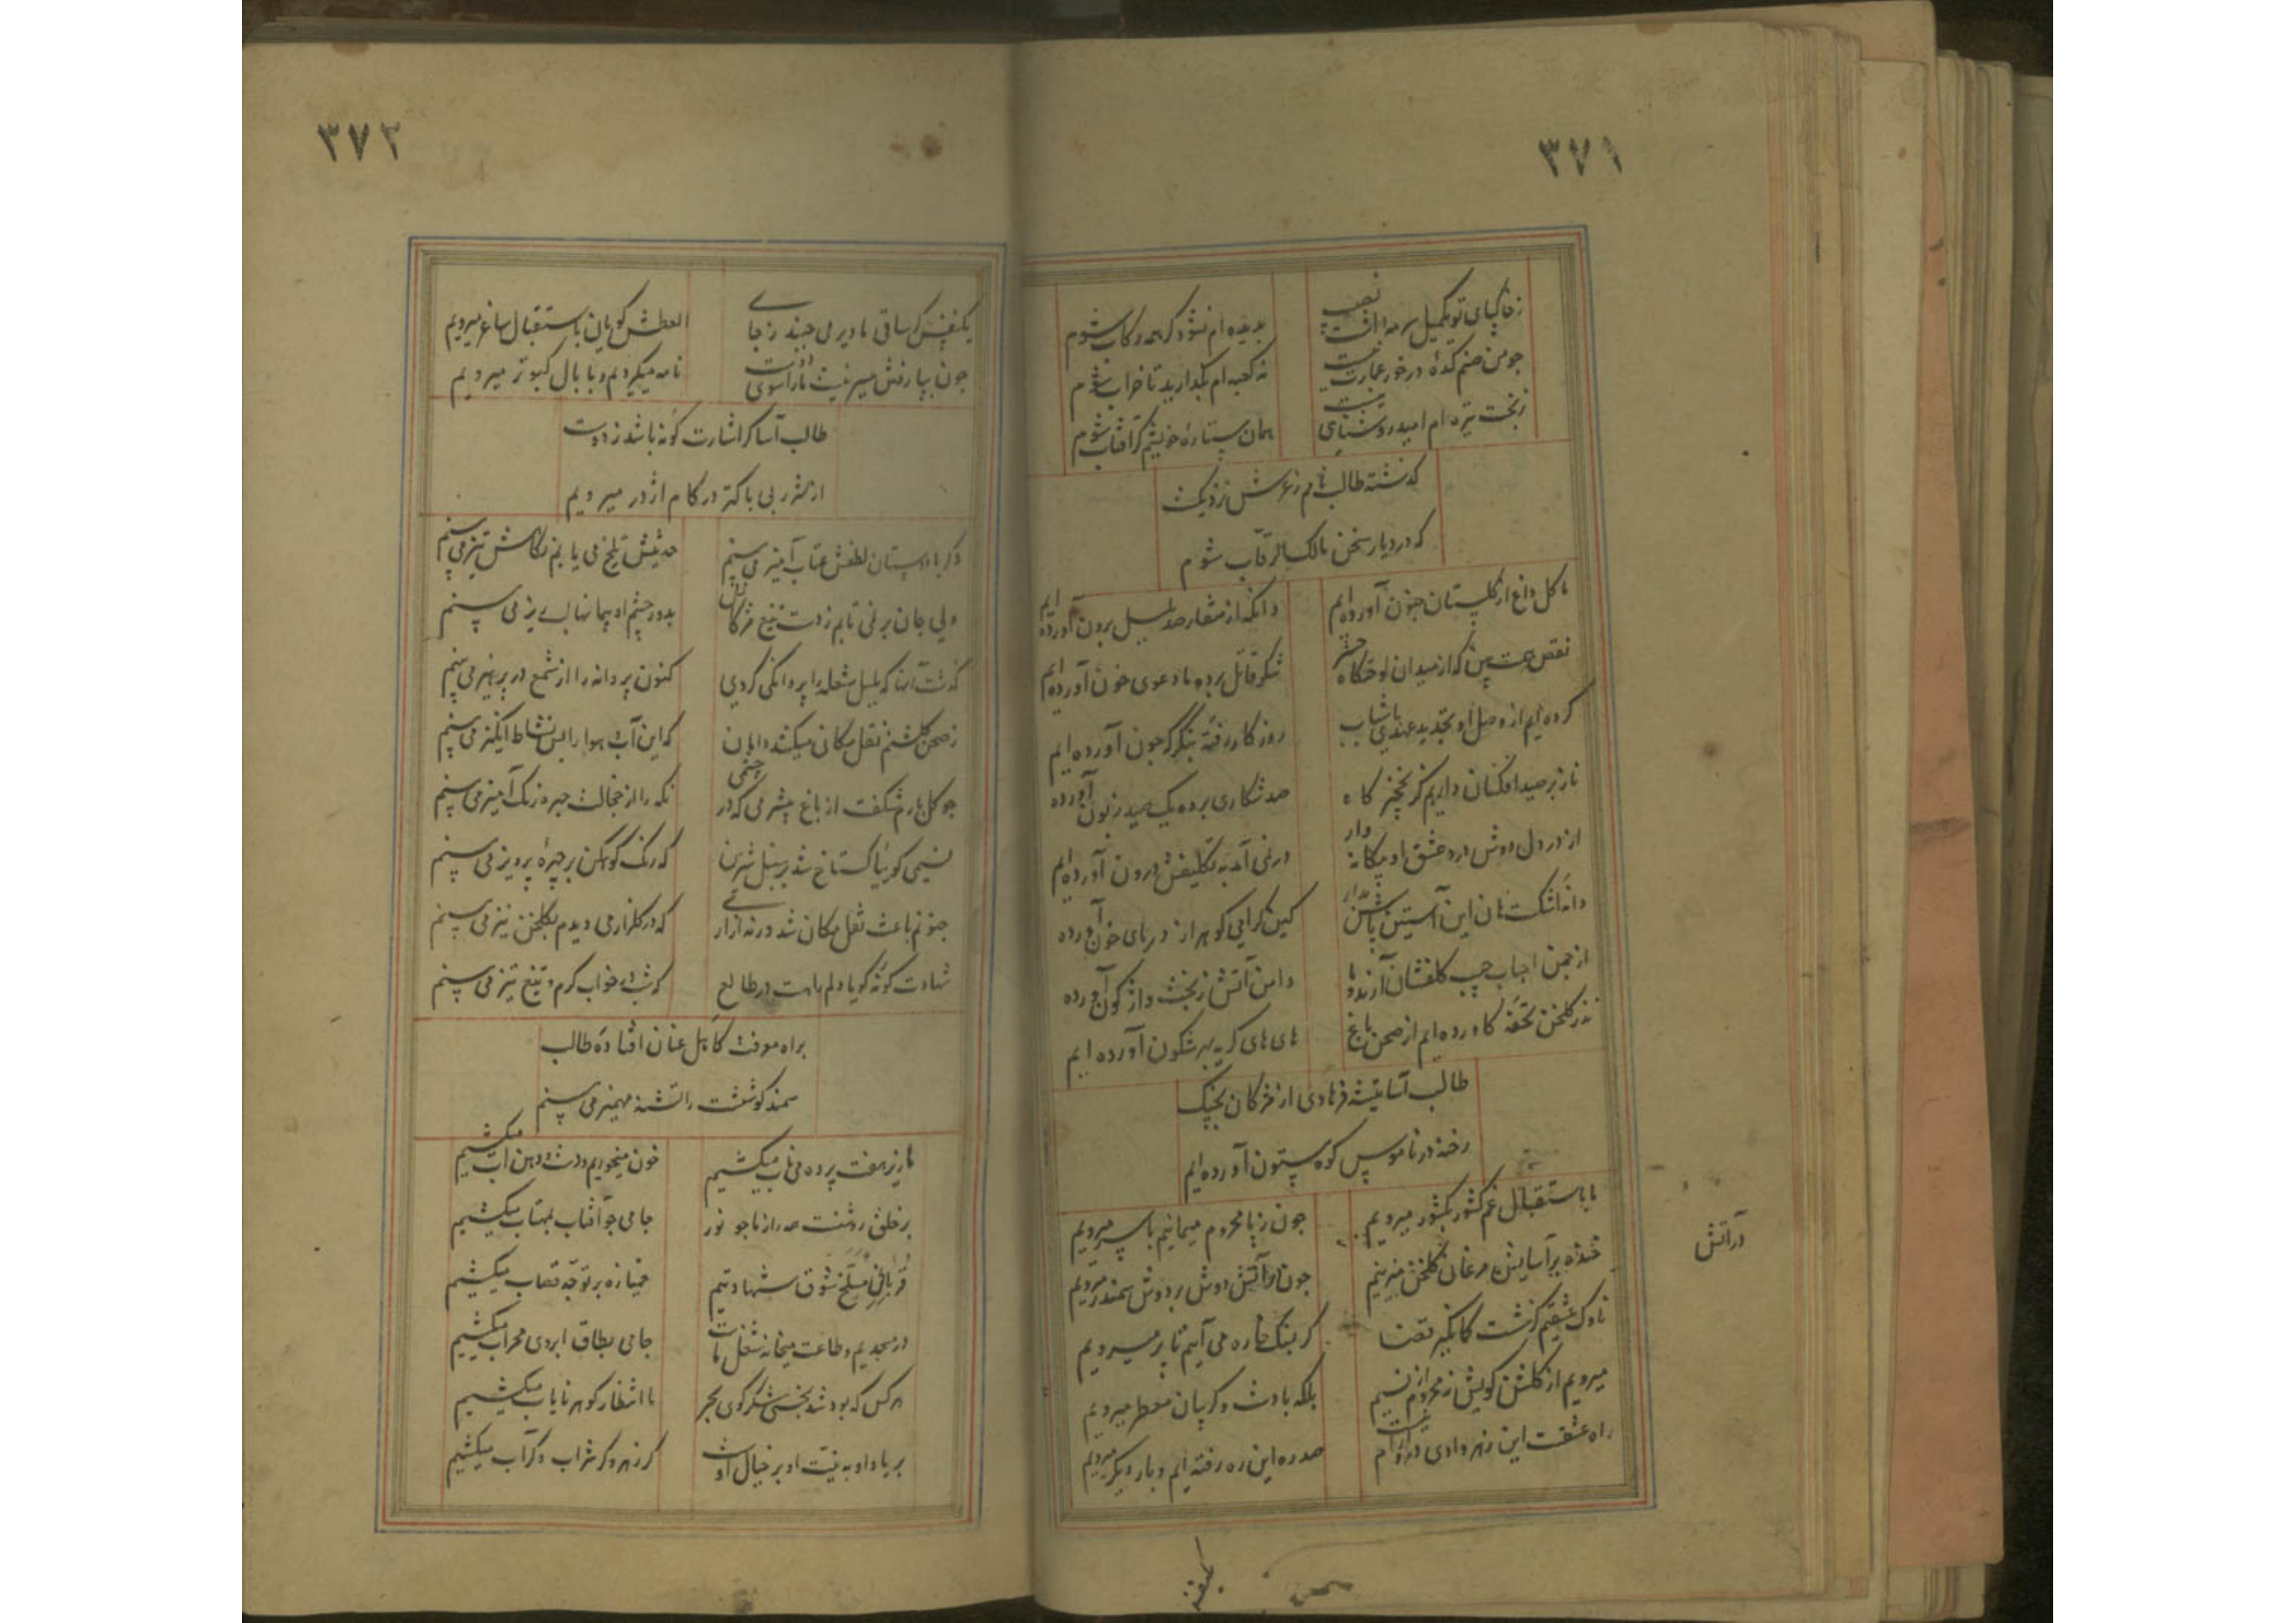 ٣٧١
ز خاکپای تو تکمیل سرمه ام نصیب
بدیده ام نشود گر همه رکاب شوم
چو من صنم کدهٔ در خور عمارت نیست
نه کعبه ام بگذارید تا خراب شوم
ز بخت تیره ام امید روشنای نیست
همان ستارهٔ خویشم گر آفتاب شوم
گذشته طالب نامم ز عرش نزدیکست
که در دیار سخن مالک الرقاب شوم
ما گل داغ از گلستان جنون آورده ایم
وانگه از منقار صد بلبل برون آورده ایم
نقص همت بین که از میدان او حشرگاه
شکر قاتل برده ما دعوی خون آورده ایم
کرده ایم از وصل او تجدید عهدی با شباب
روزگار رفته بنگر که چون آورده ایم
ناز بر صید افکنان داریم کز نخچیر گاه
صد شکاری برده یک صید زبون آورده
از در دل دوش درد عشق او بیگانه وار
در نمی آمد به تکلیفش درون آورده ایم
دانهٔ اشکست هان این آستین پاس دار
کین گرامی گوهر از دریای خون آورده
از چمن احباب جیب گلفشان آرند و ما
دامن آتش ز بخت واژگون آورده
نذر گلخن تحفهٔ کاورده ایم از صحن باغ
های های گریه بهر شگون آورده ایم
طالب آسا تیشهٔ فرهادی از مژگان بچنگ
رخنه در ناموس کوه بیستون آورده ایم
ما باستقبال غم کشور بکشور میرویم
چون ز پا محروم میمانیم با سر میرویم
خنده بر آسایش مرغان گلخن میزنیم
چون در آتش دوش بر دوش سمندر میرویم
در آتش
ناوک عشقیم کز شست کمانگیر قضا
گر بسنگ خاره می آییم تا پر میرویم
میرویم از گلشن کویش نه محروم از نسیم
بلکه با دست و گریبان معطر میرویم
راه عشقست این نه هر وادی در او آرام نیست
صد ره این ره رفته ایم و بار دیگر میرویم
یکنفس
٣٧٢
یکنفس گر ساقی ما دیر می جنبد ز جای
العطش گویان باستقبال ساغر میرویم
چون بپا رفتن میسر نیست ما را سوی دوست
نامه میگردیم و با بال کبوتر میرویم
طالب آسا گر اشارت گونهٔ باشد ز دوست
از شرر بی باکتر در کام اژدر میرویم
دگر با دوستان لطفش عتاب آمیز می بینم
حدیثش تلخ می یابم نگاهش تیز می بینم
ولی جان بر نمی تابم ز دست تیغ مژگانش
بدور چشم او پیمانها لبریز می بینم
گذشت آنها که بلبل شعله را پروانگی کردی
کنون پروانه را از شمع در پرهیز می بینم
ز صحن گلشنم نقل مکان میکشد دامان
که این آب و هوا را بس نشاط انگیز می بینم
چو گل بازم شگفت از باغ بیشرمی که در چشمی
نگه را از خجالت چهره رنگ آمیز می بینم
نسیمی کو بیا گستاخ شد بر سنبل شیرین
که رنگ کوهکن بر چهرهٔ پرویز می بینم
جنونم باعث نقل مکان شد ورنه آزاری
که در گلزار می دیدم بگلخن نیز می بینم
شهادت گونهٔ گویا دلم راهست در طالع
که شبها خواب گرم و تیغ تیز می بینم
براه معرفت کاهل عنان افتادهٔ طالب
سمند کوششت را تشنهٔ مهمیز می بینم
ما زیر هفت پرده می ناب میکشیم
خون میخوریم و دست و دهن آب میکشیم
بر خلق روشنست که راز ما چو نور
جامی چو آفتاب بمهتاب میکشیم
قربانی مسلخ شوق شهادتیم
خمیازه بر توجه قصاب میکشیم
در مسجدیم و طاعت میخانه شغل ماست
جامی بطاق ابروی محراب میکشیم
هر کس که بود شد بخسی شکر گوی بحر
ما انتظار گوهر نایاب میکشیم
بر یاد او به نیت او بر خیال اوست
گر زهر و گر شراب و گر آب میکشیم